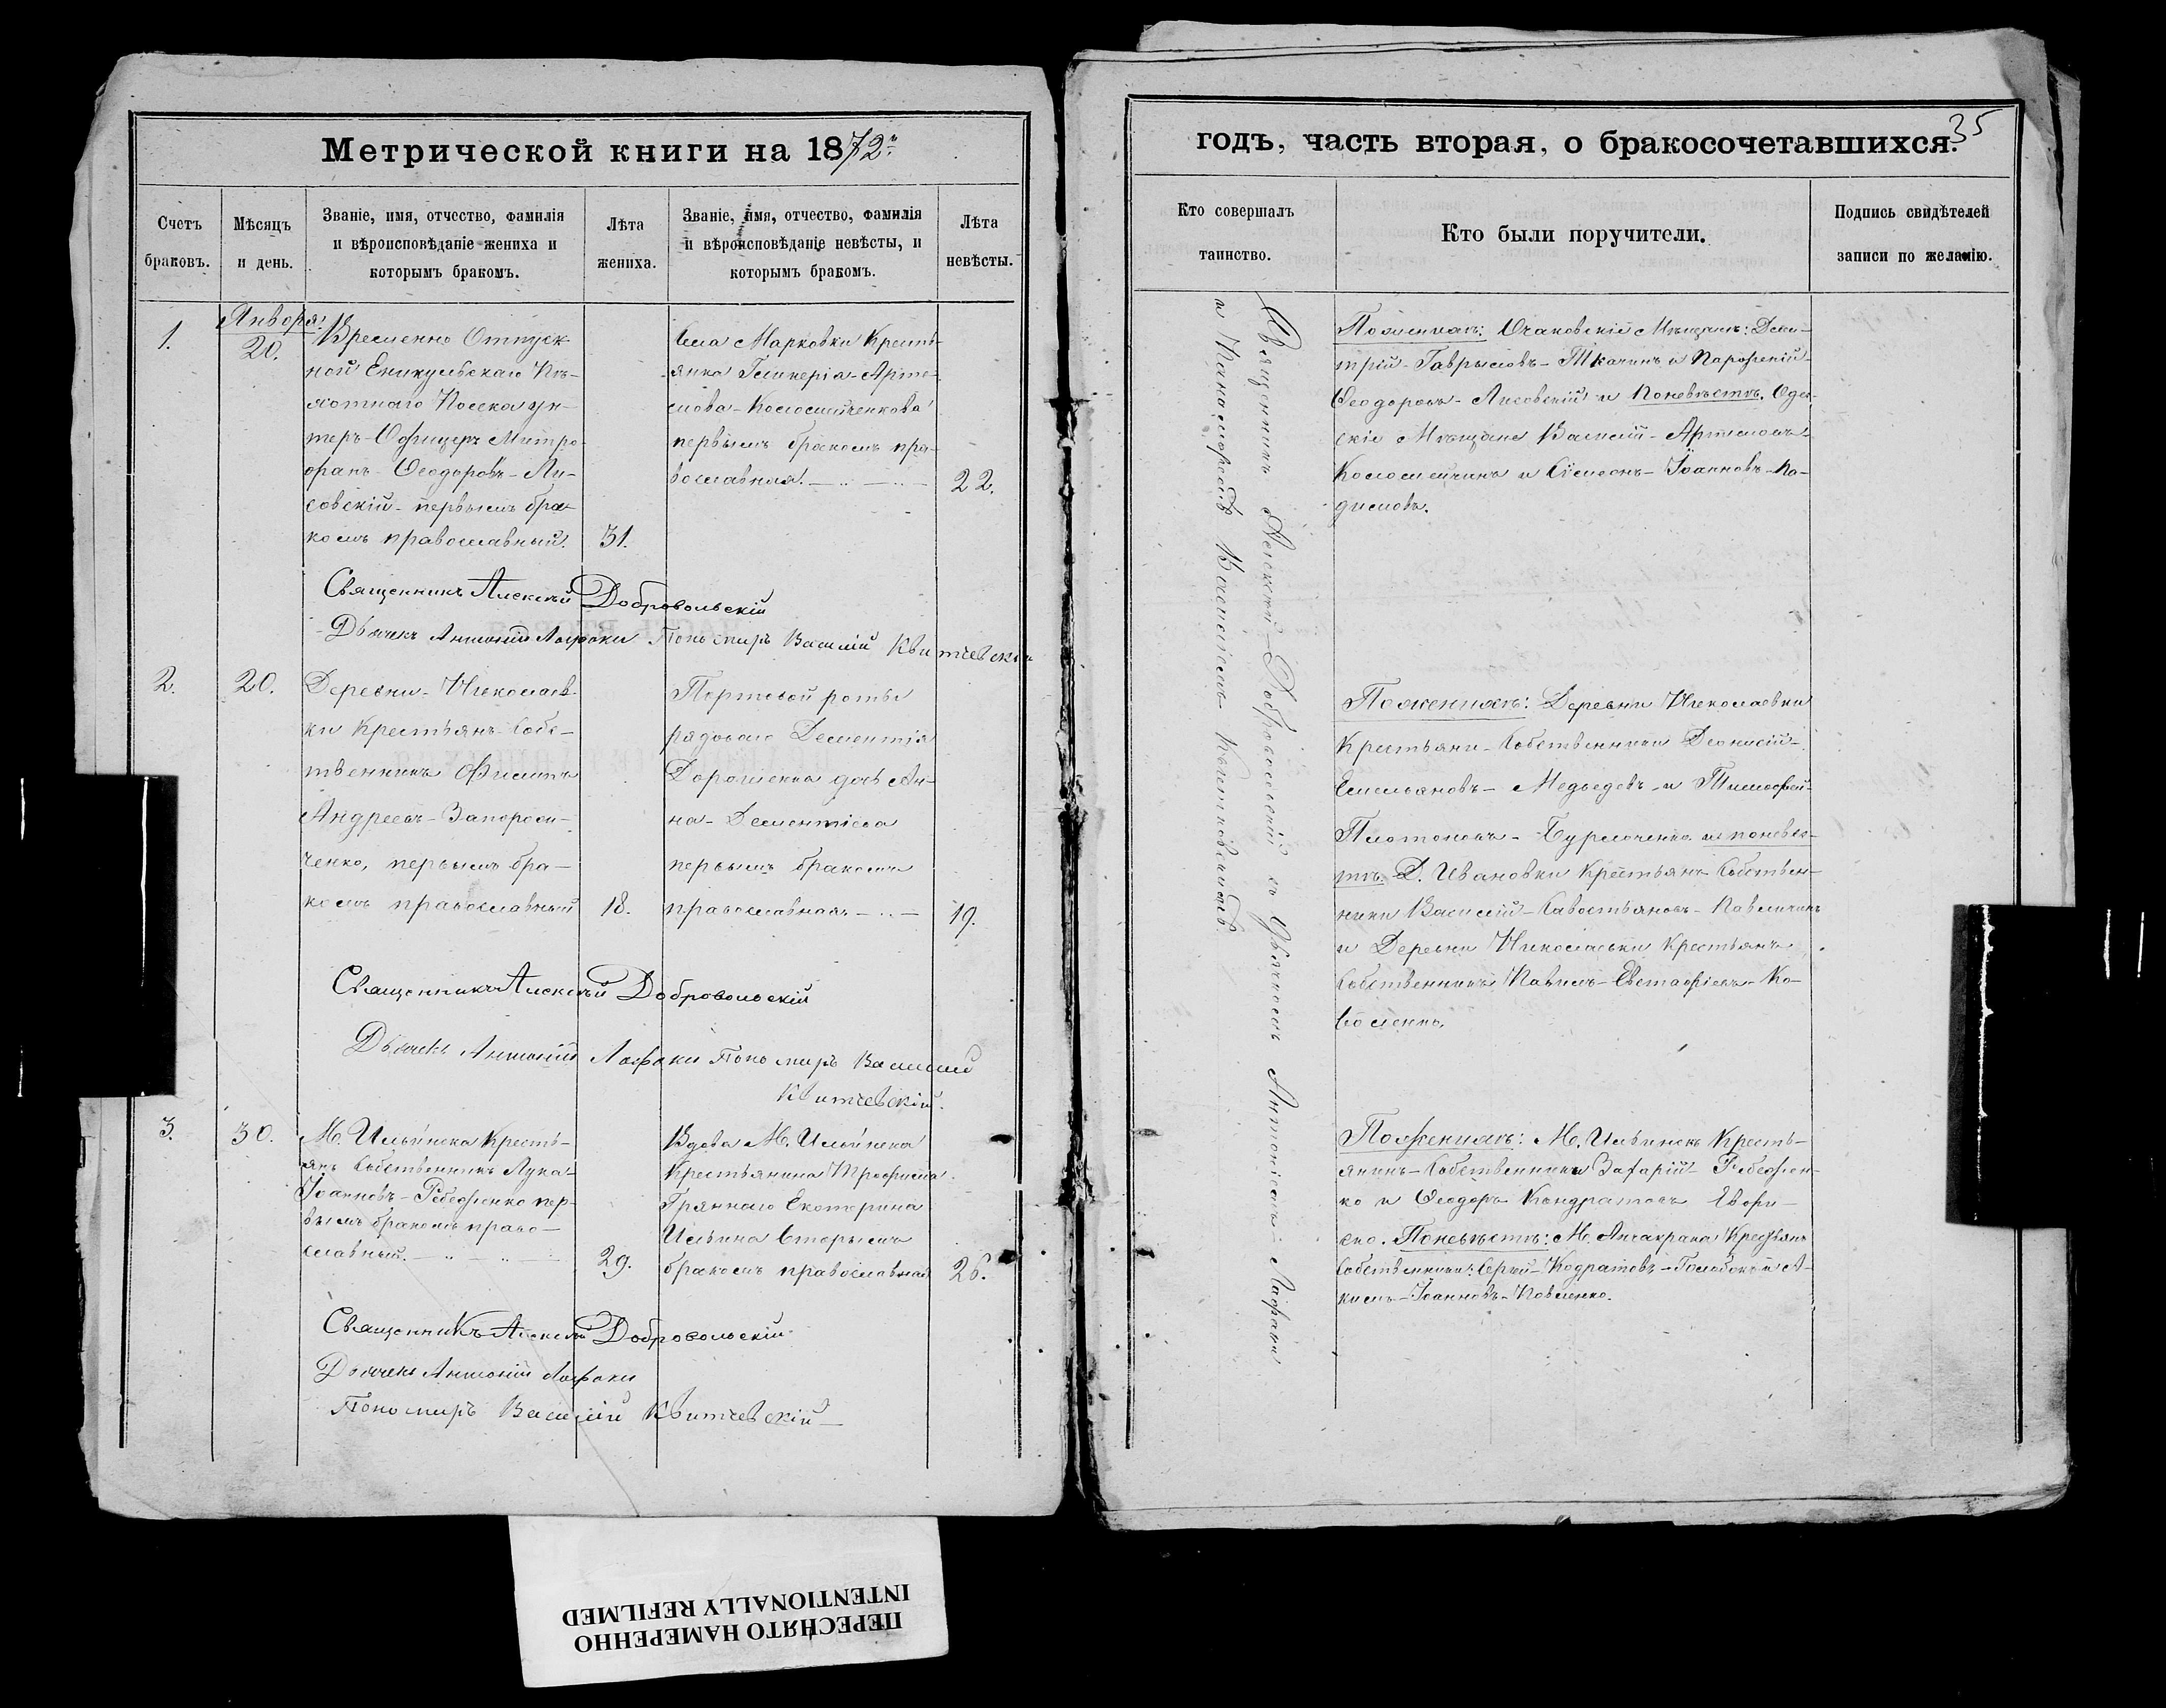 Метрической книги на 1872
Счетъ браковъ.
Мѣсяцъ и день.
Званіе, имя, отчество, фамилія и вѣроисповѣданіе жениха и которымъ бракомъ.
Лѣта жениха.
Званіе, имя, отчество, фамилія и вѣроисповѣданіе невѣсты, и которымъ бракомъ.
Лѣта невѣсты.
1.
Января:
20.
Временно Отпуск-
ной Еникульскаго Пѣ-
хотнаго Полка ун-
теръ-Офицеръ Митро-
фанъ-Ѳеодоровъ-Ли-
совскій-первымъ бра-
комъ православный.
31.
Села Марковки Кресть-
янка Гликерія-Арте-
мова-Коломийченкова
первымъ бракомъ пра-
вославная.
22.
Священникъ Алексѣй Добровольскій
Дьячекъ Антоній Лафаки Пономарь Василій Квитчевскій
2.
20.
Деревни-Николаев-
ки Крестьянъ-Собс-
твенникъ Филипъ
Андреевъ-Запорож-
ченко, первымъ бра-
комъ православный
18.
Портовой роты
рядоваго Дементія
Дорошенка дочь Ан-
на-Дементіева
первымъ бракомъ
православная
19.
Священникъ Алексѣй Добровольскій
Дьячекъ Антоній Лафаки Пономарь Василій
Квитчевскій.
3.
30.
М. Ильинска Кресть-
янъ Собственникъ Лука
Іоанновъ-Ребедженко пер-
вымъ бракомъ право-
славный.
29.
Вдова М. Ильинска
Крестьянина Трофима
Гряннаго Екатерина
Ильина вторымъ
бракомъ православная
26.
Священникъ Алексѣй Добровольскій
Дьячекъ Антоній Лафаки
Пономарь Василій Квитчевскій
35
годъ, часть вторая, о бракосочетавшихся.
Кто совершалъ таинство.
Кто были поручители.
Подпись свидѣтелей записи по желанію.
Священникъ Алексѣй-Добровольскій съ Дьячкомъ Антоніемъ-Лафаки
и Пономаремъ Василіемъ Квитчевскимъ.
По женихѣ: Очаковскій Мѣщанъ: Дми-
трій-Гаврыловъ-Ткачинъ и
Ѳеодоровъ-Лисовскій и По невѣстѣ. Одес-
скіе Мѣщане Василій-Артемовъ-
Коломийчинъ и Сѵмеонъ-Іоанновъ-
По женихѣ: Деревни Николаевки
Крестьяни-Собственники Деонисій-
Емельяновъ-Медведевъ-и Тимофей-
Платоновъ-Бурлаченко и по невѣс-
тѣ-Д. Ивановки Крестьянъ-Собствен-
ники Василій-Савостьяновъ-
и Деревни Николаевки Крестьянъ
Собственникъ Павелъ-Евстафіевъ-Ко-
валенко.
По женихѣ: М. Ильинск Кресть-
янинъ-Собственникъ Захарій-Ребеджен-
ко и Ѳеодоръ Кондратовъ
По невѣстѣ: М. Анчакрака Крестьянъ
Собственники: Сергій-Кодратовъ-
кимъ-Іоанновъ-Павленко.
ПЕРЕСНЯТО НАМЕРЕННО
INTENTIONALLY REFILMED